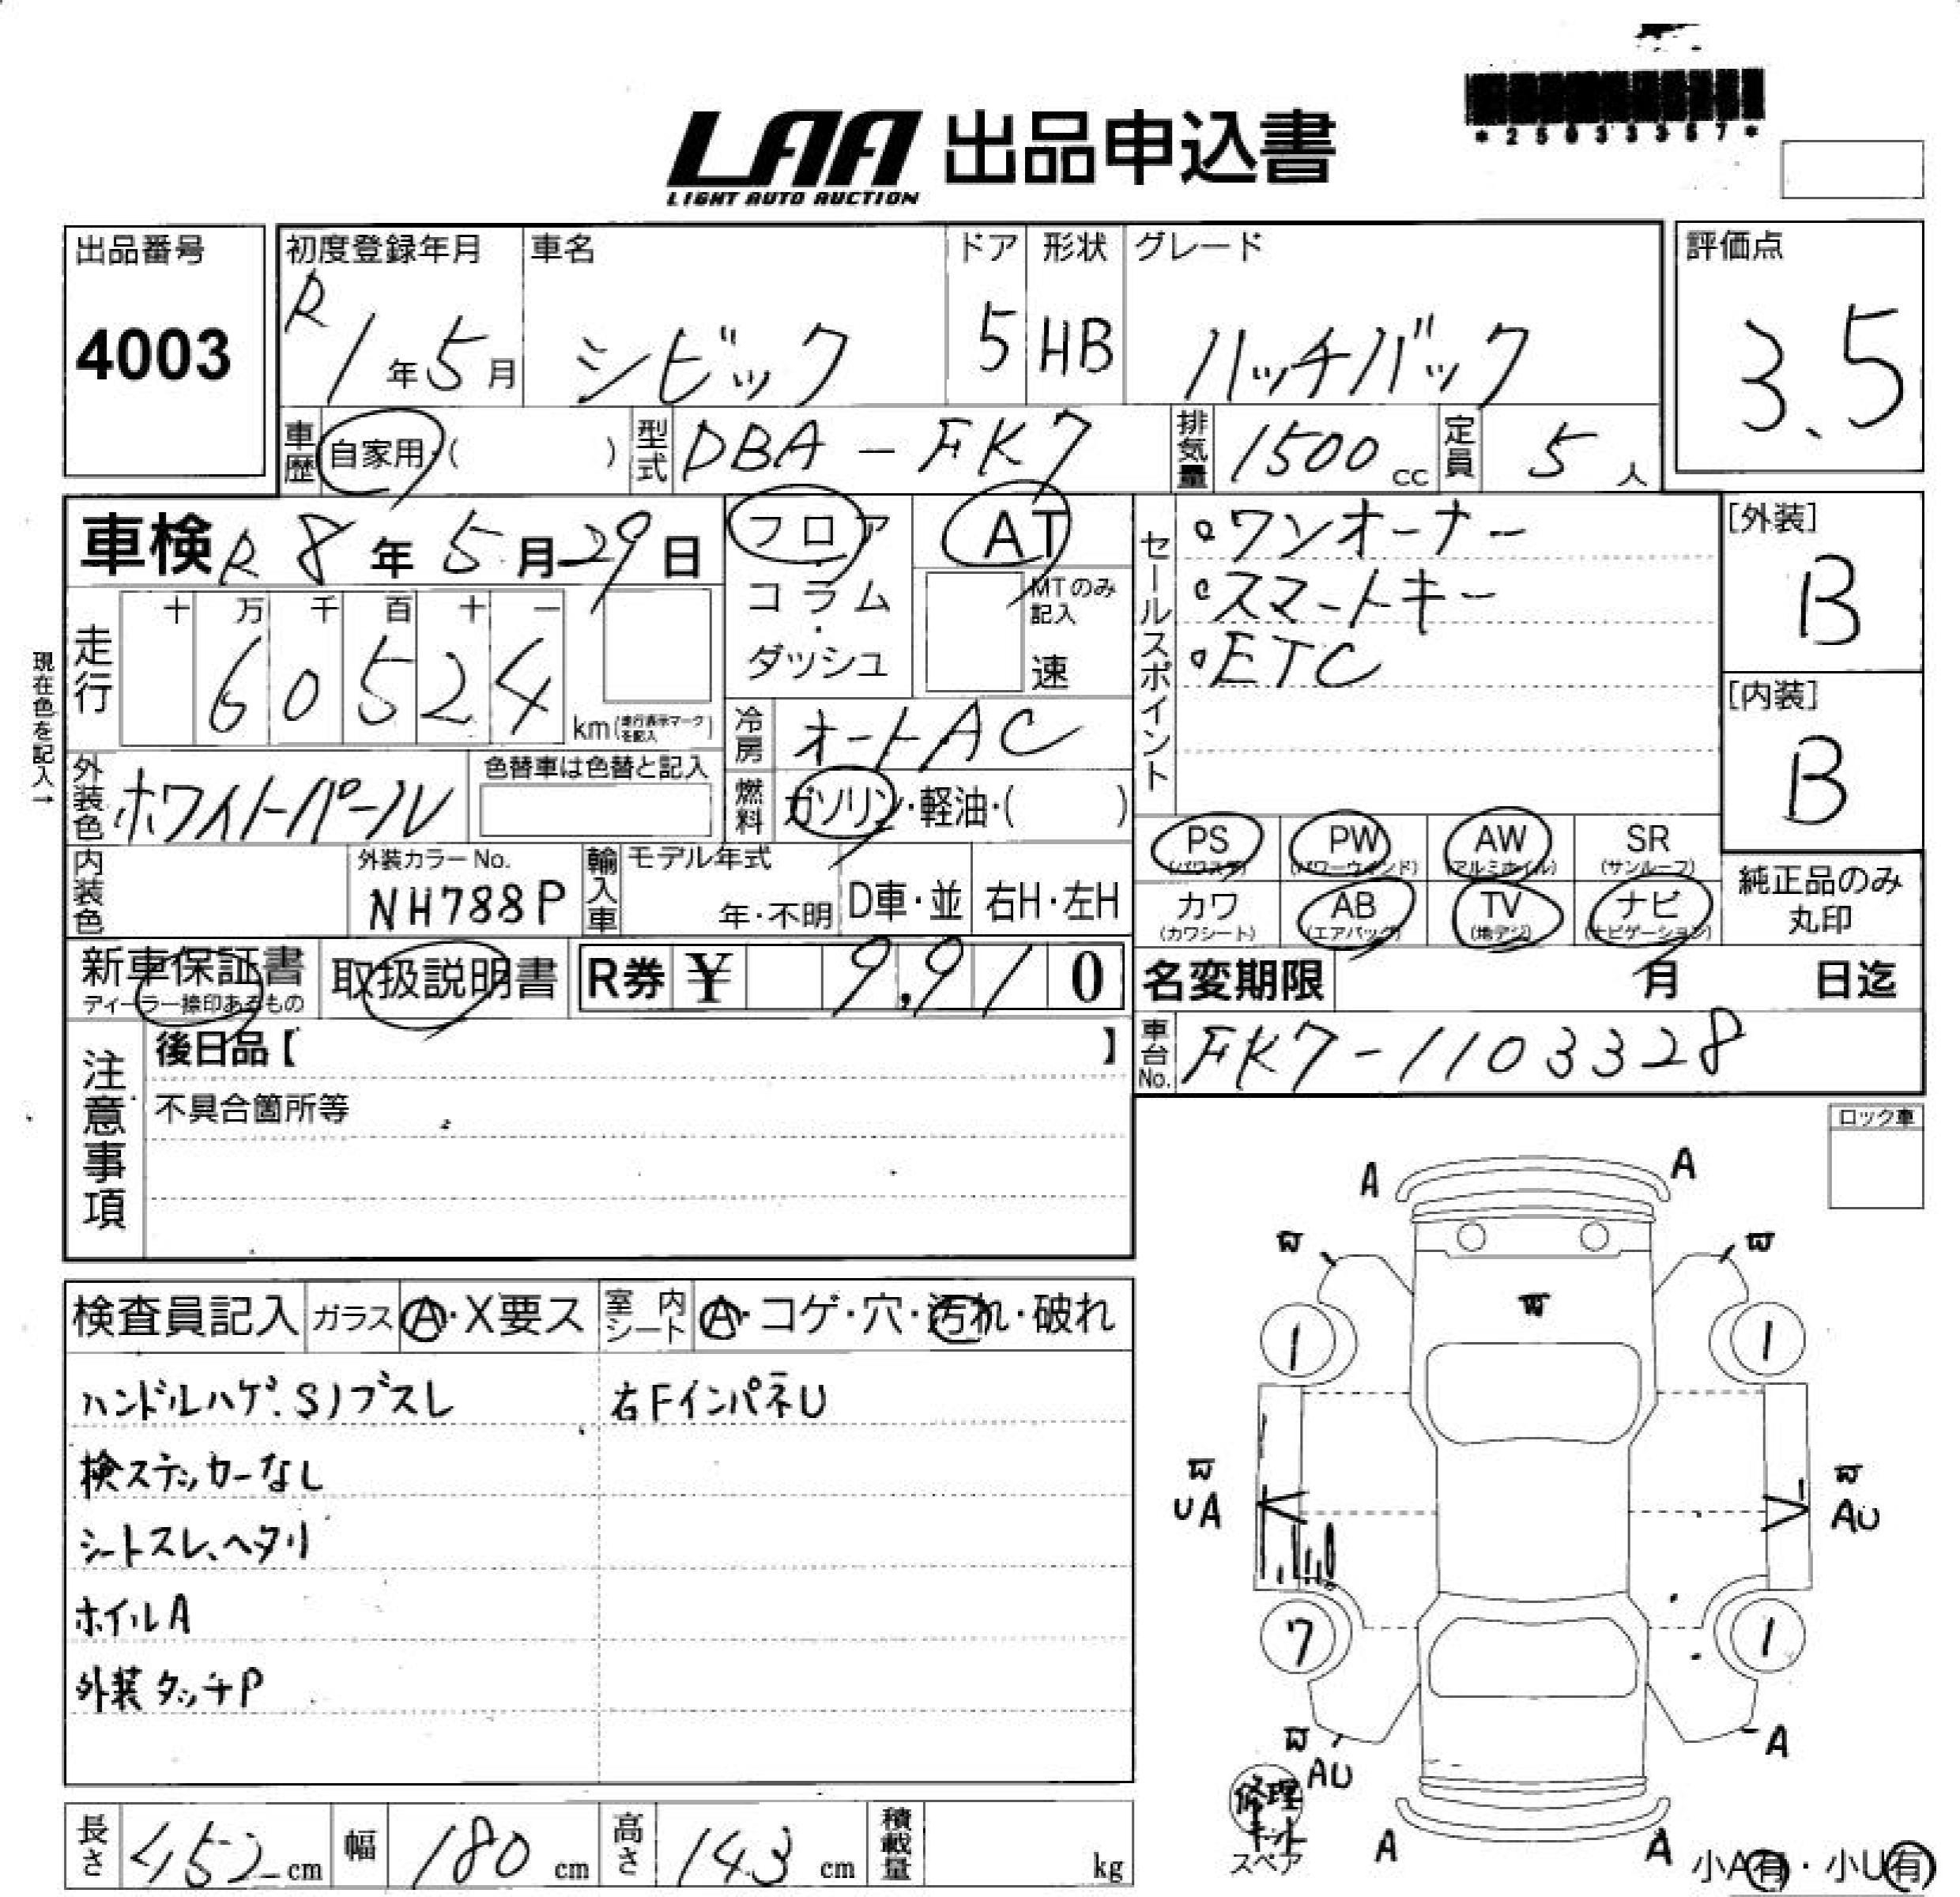 *25033367*
LAA 出品申込書
LIGHT AUTO AUCTION
出品番号 4003
初度登録年月 R1年5月
車名 シビック
ドア 5
形状 HB
グレード ハッチバック
評価点 3.5
車歴 自家用・( )
型式 DBA-FK7
排気量 1500cc
定員 5人
車検 R8年5月29日
フロア・コラム・ダッシュ
AT
MTのみ記入
速
セールスポイント
・ワンオーナー
・スマートキー
・ETC
[外装] B
[内装] B
現在色を記入→
走行 十万千百十一
60524 km(走行表示マークを記入)
冷房 オートAC
外装色 ホワイトパール
色替車は色替と記入
燃料 ガソリン・軽油・( )
PS (パワステ)
PW (パワーウインド)
AW (アルミホイル)
SR (サンルーフ)
カワ (カワシート)
AB (エアバッグ)
TV (地デジ)
ナビ (ナビゲーション)
純正品のみ丸印
内装色
外装カラーNo. NH788P
輸入車 モデル年式 年・不明
D車・並
右H・左H
新車保証書
ディーラー捺印あるもの
取扱説明書
R券 ¥ 9,910
名変期限 月 日迄
車台No. FK7-1103328
注意事項
後日品【 】
不具合箇所等
ロック車
検査員記入
ガラス A・X要ス
室内シート A・コゲ・穴・汚れ・破れ
ハンドルハゲ.Sノブスレ
右FインパネU
検ステッカーなし
シートスレ、ヘタリ
ホイルA
外装タッチP
A A
1 1
UA AU
7 1
AU A
修理キット
スペア
A A
小A有・小U有
長さ 452cm
幅 180cm
高さ 143cm
積載量 kg